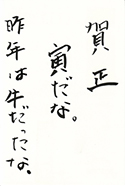 賀正
寅だな。
昨年は牛だったな、